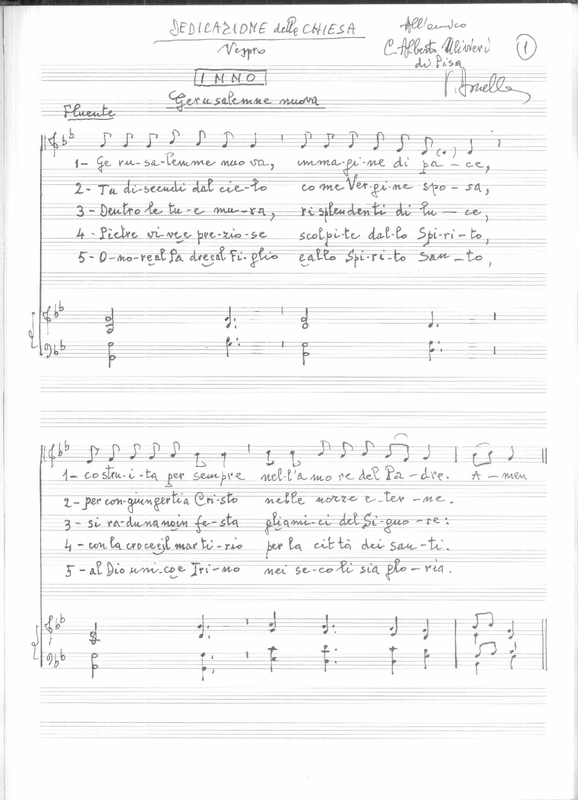 DEDICAZIONE delle CHIESA
Vespro
All'amico
C. Alberto Ulivieri
di Pisa
1
INNO
Gerusalemme nuova
Fluente
1- Ge ru-sa-lemme nuo va, imma-gi-ne di pa-ce,
2- Tu di-scendi dal cie-lo come Ver-gi-ne spo-sa,
3- Dentro le tu-e mu-ra, risplendenti di lu-ce,
4- Pietre vi-ve e pre-zio-se scolpite dal-lo Spi-ri-to,
5- O-no-re al Pa dre e al Fi-glio e allo Spi-ri-to San-to,
1- costru-i-ta per sempre nel-l'a mo re del Pa-dre. A-men
2- per con-giungerti a Cri-sto nelle nozze e-ter-ne.
3- si ra-du-nano in fe-sta gli ami-ci del Si-gno-re:
4- con la croce e il marti-rio per la città dei san-ti.
5- al Dio uni-co e Tri-no nei se-co-li sia glo-ria.